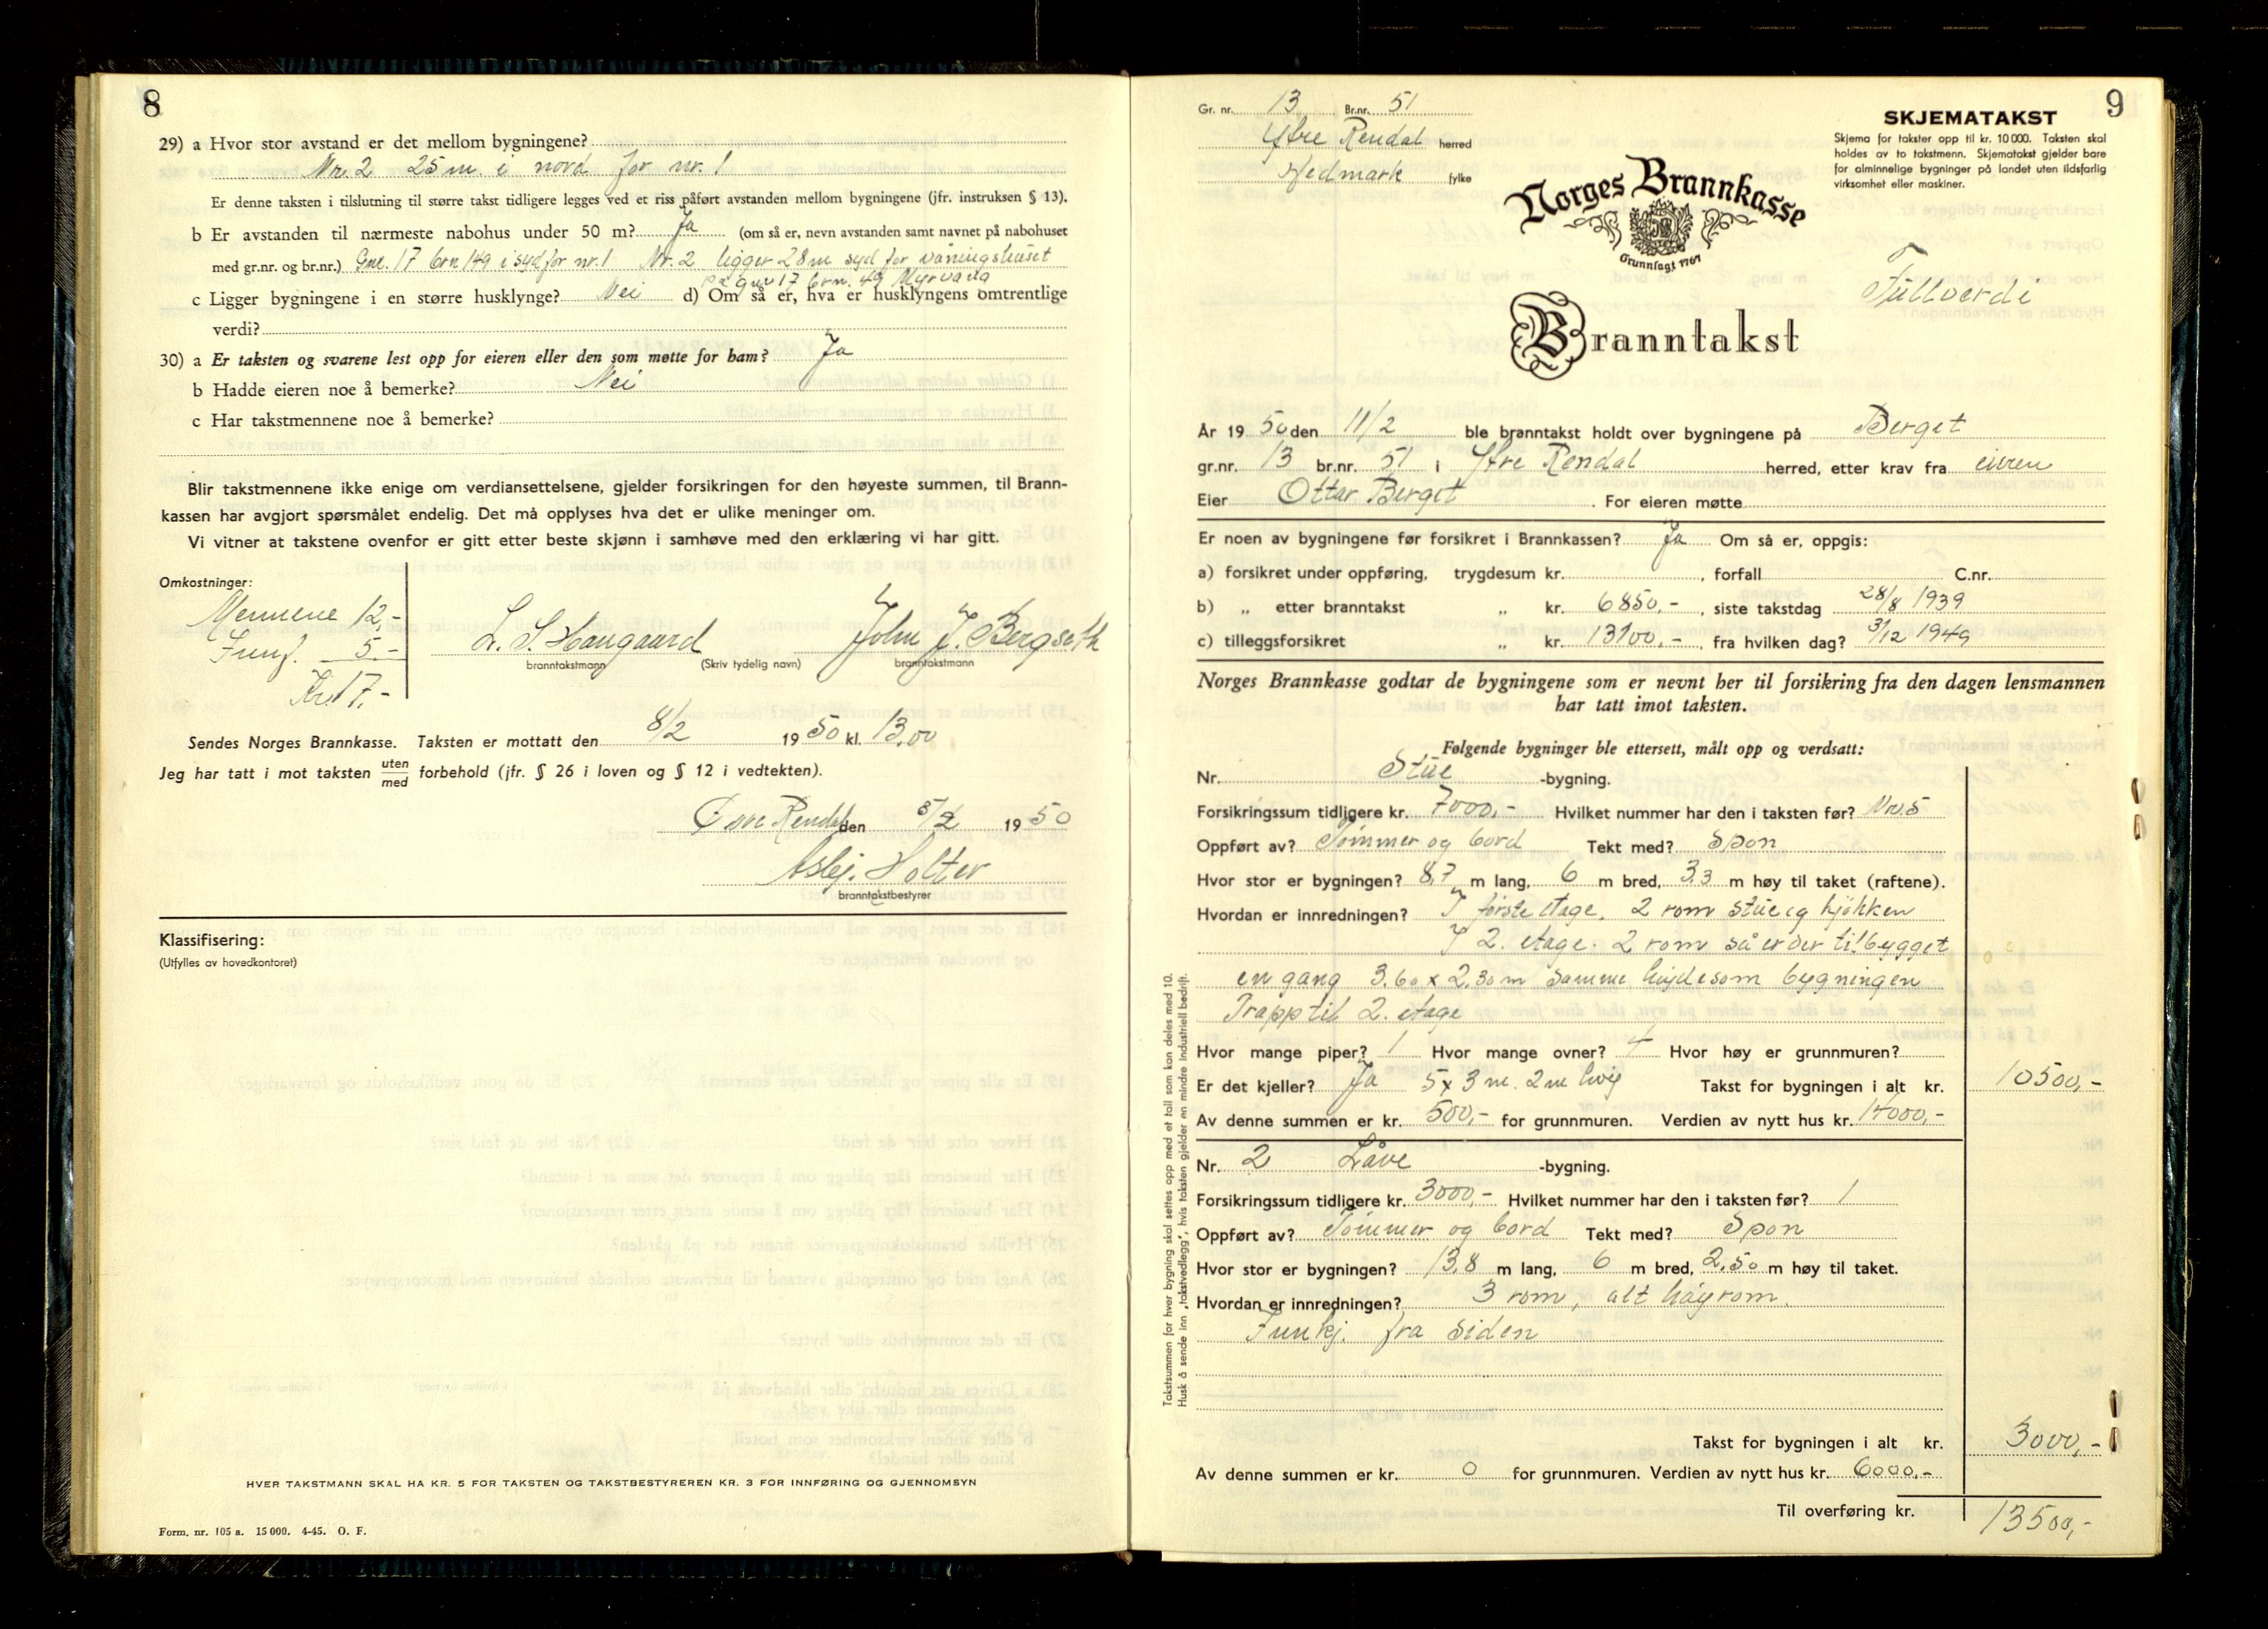 8
29) a Hvor stor avstand er det mellom bygningene?
Nr. 2 25 m. i nord for nr. 1
Er denne taksten i tilslutning til større takst tidligere legges ved et riss påført avstanden mellom bygningene (jfr. instruksen § 13).
b Er avstanden til nærmeste nabohus under 50 m? Ja (om så er, nevn avstanden samt navnet på nabohuset
med gr.nr. og br.nr.) Gnr. 17 brn 49 i syd for nr. 1 Nr. 2 ligger 28 m syd for våningshuset
på gnr 17 brn. 49 Myrvang
c Ligger bygningene i en større husklynge? Nei d) Om så er, hva er husklyngens omtrentlige
verdi?
30) a Er taksten og svarene lest opp for eieren eller den som møtte for ham? Ja
b Hadde eieren noe å bemerke? Nei
c Har takstmennene noe å bemerke?
Blir takstmennene ikke enige om verdiansettelsene, gjelder forsikringen for den høyeste summen, til Brann-
kassen har avgjort spørsmålet endelig. Det må opplyses hva det er ulike meninger om.
Vi vitner at takstene ovenfor er gitt etter beste skjønn i samhøve med den erklæring vi har gitt.
Omkostninger:
Mennene 12,-
5.-
Kr. 17.-
L. S. Haugaard John J. Bergseth
branntakstmann (Skriv tydelig navn) branntakstmann
Sendes Norges Brannkasse. Taksten er mottatt den 8/2 1950 kl. 13.00
Jeg har tatt i mot taksten uten/med forbehold (jfr. § 26 i loven og § 12 i vedtekten).
Rendal den 8/2 1950
Asbj. Holter
branntakstbestyrer
Klassifisering:
(Utfylles av hovedkontoret)
HVER TAKSTMANN SKAL HA KR. 5 FOR TAKSTEN OG TAKSTBESTYREREN KR. 3 FOR INNFØRING OG GJENNOMSYN
Form. nr. 105 a. 15 000. 4-45. O. F.
9
Gr. nr. 13 Br.nr. 51
Ytre Rendal herred
Hedmark fylke
SKJEMATAKST
Skjema for takster opp til kr. 10 000. Taksten skal
holdes av to takstmenn. Skjematakst gjelder bare
for alminnelige bygninger på landet uten ildsfarlig
virksomhet eller maskiner.
Norges Brannkasse
Grunnlagt 1767
Fullverdi
Branntakst
År 1950 den 11/2 ble branntakst holdt over bygningene på Berget
gr.nr. 13 br.nr. 51 i Ytre Rendal herred, etter krav fra eieren
Eier Ottar Berget. For eieren møtte
Er noen av bygningene før forsikret i Brannkassen? Ja Om så er, oppgis:
a) forsikret under oppføring, trygdesum kr. , forfall C.nr.
b) „ etter branntakst „ kr. 6850,- , siste takstdag 28/8 1939
c) tilleggsforsikret „ kr. 13100,- , fra hvilken dag? 31/12 1949
Norges Brannkasse godtar de bygningene som er nevnt her til forsikring fra den dagen lensmannen
har tatt imot taksten.
Følgende bygninger ble ettersett, målt opp og verdsatt:
Nr. Stue -bygning.
Forsikringssum tidligere kr. 7000,- Hvilket nummer har den i taksten før? Nr. 5
Oppført av? Tømmer og bord Tekt med? Spon
Hvor stor er bygningen? 8,7 m lang, 6 m bred, 3,3 m høy til taket (raftene).
Hvordan er innredningen? I første etage, 2 rom stue og kjøkken
I 2. etage. 2 rom så er der tilbygget
en gang 3.60 x 2.30 m samme høyde som bygningen
Trapp til 2. etage
Hvor mange piper? 1 Hvor mange ovner? 4 Hvor høy er grunnmuren?
Er det kjeller? Ja 5 x 3 m. 2 m høy Takst for bygningen i alt kr. 10500,-
Av denne summen er kr. 500,- for grunnmuren. Verdien av nytt hus kr. 14000,-
Nr. 2 Låve -bygning.
Forsikringssum tidligere kr. 3000,- Hvilket nummer har den i taksten før? 1
Oppført av? Tømmer og bord Tekt med? Spon
Hvor stor er bygningen? 13,8 m lang, 6 m bred, 2,50 m høy til taket.
Hvordan er innredningen? 3 rom, alt høyrom.
Innkj. fra siden
Takst for bygningen i alt kr. 3000,-
Av denne summen er kr. 0 for grunnmuren. Verdien av nytt hus kr. 6000,-
Til overføring kr. 13500,-
Takstsummen for hver bygning skal settes opp med et tall som kan deles med 10.
Husk å sende inn „takstvedlegg", hvis taksten gjelder en mindre industriell bedrift.